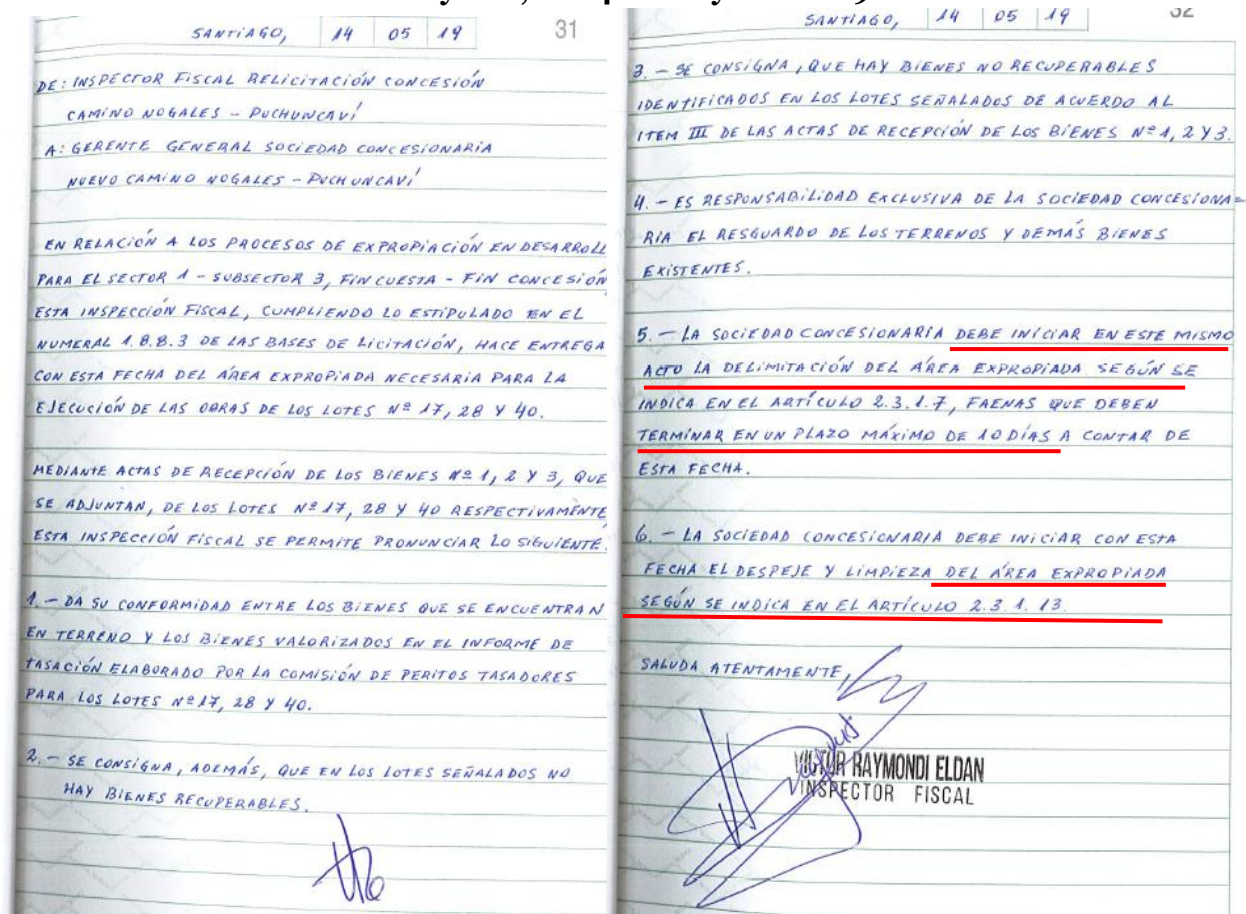 SANTIAGO, 14 05 19
31
DE: INSPECTOR FISCAL RELICITACIÓN CONCESIÓN
CAMINO NOGALES - PUCHUNCAVÍ
A: GERENTE GENERAL SOCIEDAD CONCESIONARIA
NUEVO CAMINO NOGALES - PUCHUNCAVÍ
EN RELACIÓN A LOS PROCESOS DE EXPROPIACIÓN EN DESARROLL
PARA EL SECTOR 1 - SUBSECTOR 3, FIN CUESTA - FIN CONCESIÓN
ESTA INSPECCIÓN FISCAL, CUMPLIENDO LO ESTIPULADO EN EL
NUMERAL 1.8.8.3 DE LAS BASES DE LICITACIÓN, HACE ENTREGA
CON ESTA FECHA DEL ÁREA EXPROPIADA NECESARIA PARA LA
EJECUCIÓN DE LAS OBRAS DE LOS LOTES Nº 17, 28 Y 40.
MEDIANTE ACTAS DE RECEPCIÓN DE LOS BIENES Nº 1, 2 Y 3, QUE
SE ADJUNTAN, DE LOS LOTES Nº 17, 28 Y 40 RESPECTIVAMENTE
ESTA INSPECCIÓN FISCAL SE PERMITE PRONUNCIAR LO SIGUIENTE.
1.- DA SU CONFORMIDAD ENTRE LOS BIENES QUE SE ENCUENTRAN
EN TERRENO Y LOS BIENES VALORIZADOS EN EL INFORME DE
TASACIÓN ELABORADO POR LA COMISIÓN DE PERITOS TASADORES
PARA LOS LOTES Nº 17, 28 Y 40.
2.- SE CONSIGNA, ADEMÁS, QUE EN LOS LOTES SEÑALADOS NO
HAY BIENES RECUPERABLES.
SANTIAGO, 14 05 19
32
3.- SE CONSIGNA, QUE HAY BIENES NO RECUPERABLES
IDENTIFICADOS EN LOS LOTES SEÑALADOS DE ACUERDO AL
ITEM III DE LAS ACTAS DE RECEPCIÓN DE LOS BIENES Nº 1, 2 Y 3.
4.- ES RESPONSABILIDAD EXCLUSIVA DE LA SOCIEDAD CONCESIONA-
RIA EL RESGUARDO DE LOS TERRENOS Y DEMÁS BIENES
EXISTENTES.
5.- LA SOCIEDAD CONCESIONARIA DEBE INICIAR EN ESTE MISMO
ACTO LA DELIMITACIÓN DEL ÁREA EXPROPIADA SEGÚN SE
INDICA EN EL ARTÍCULO 2.3.1.7, FAENAS QUE DEBEN
TERMINAR EN UN PLAZO MÁXIMO DE 10 DÍAS A CONTAR DE
ESTA FECHA.
6.- LA SOCIEDAD CONCESIONARIA DEBE INICIAR CON ESTA
FECHA EL DESPEJE Y LIMPIEZA DEL ÁREA EXPROPIADA
SEGÚN SE INDICA EN EL ARTÍCULO 2.3.1.13.
SALUDA ATENTAMENTE,
VICTOR RAYMONDI ELDAN
INSPECTOR FISCAL